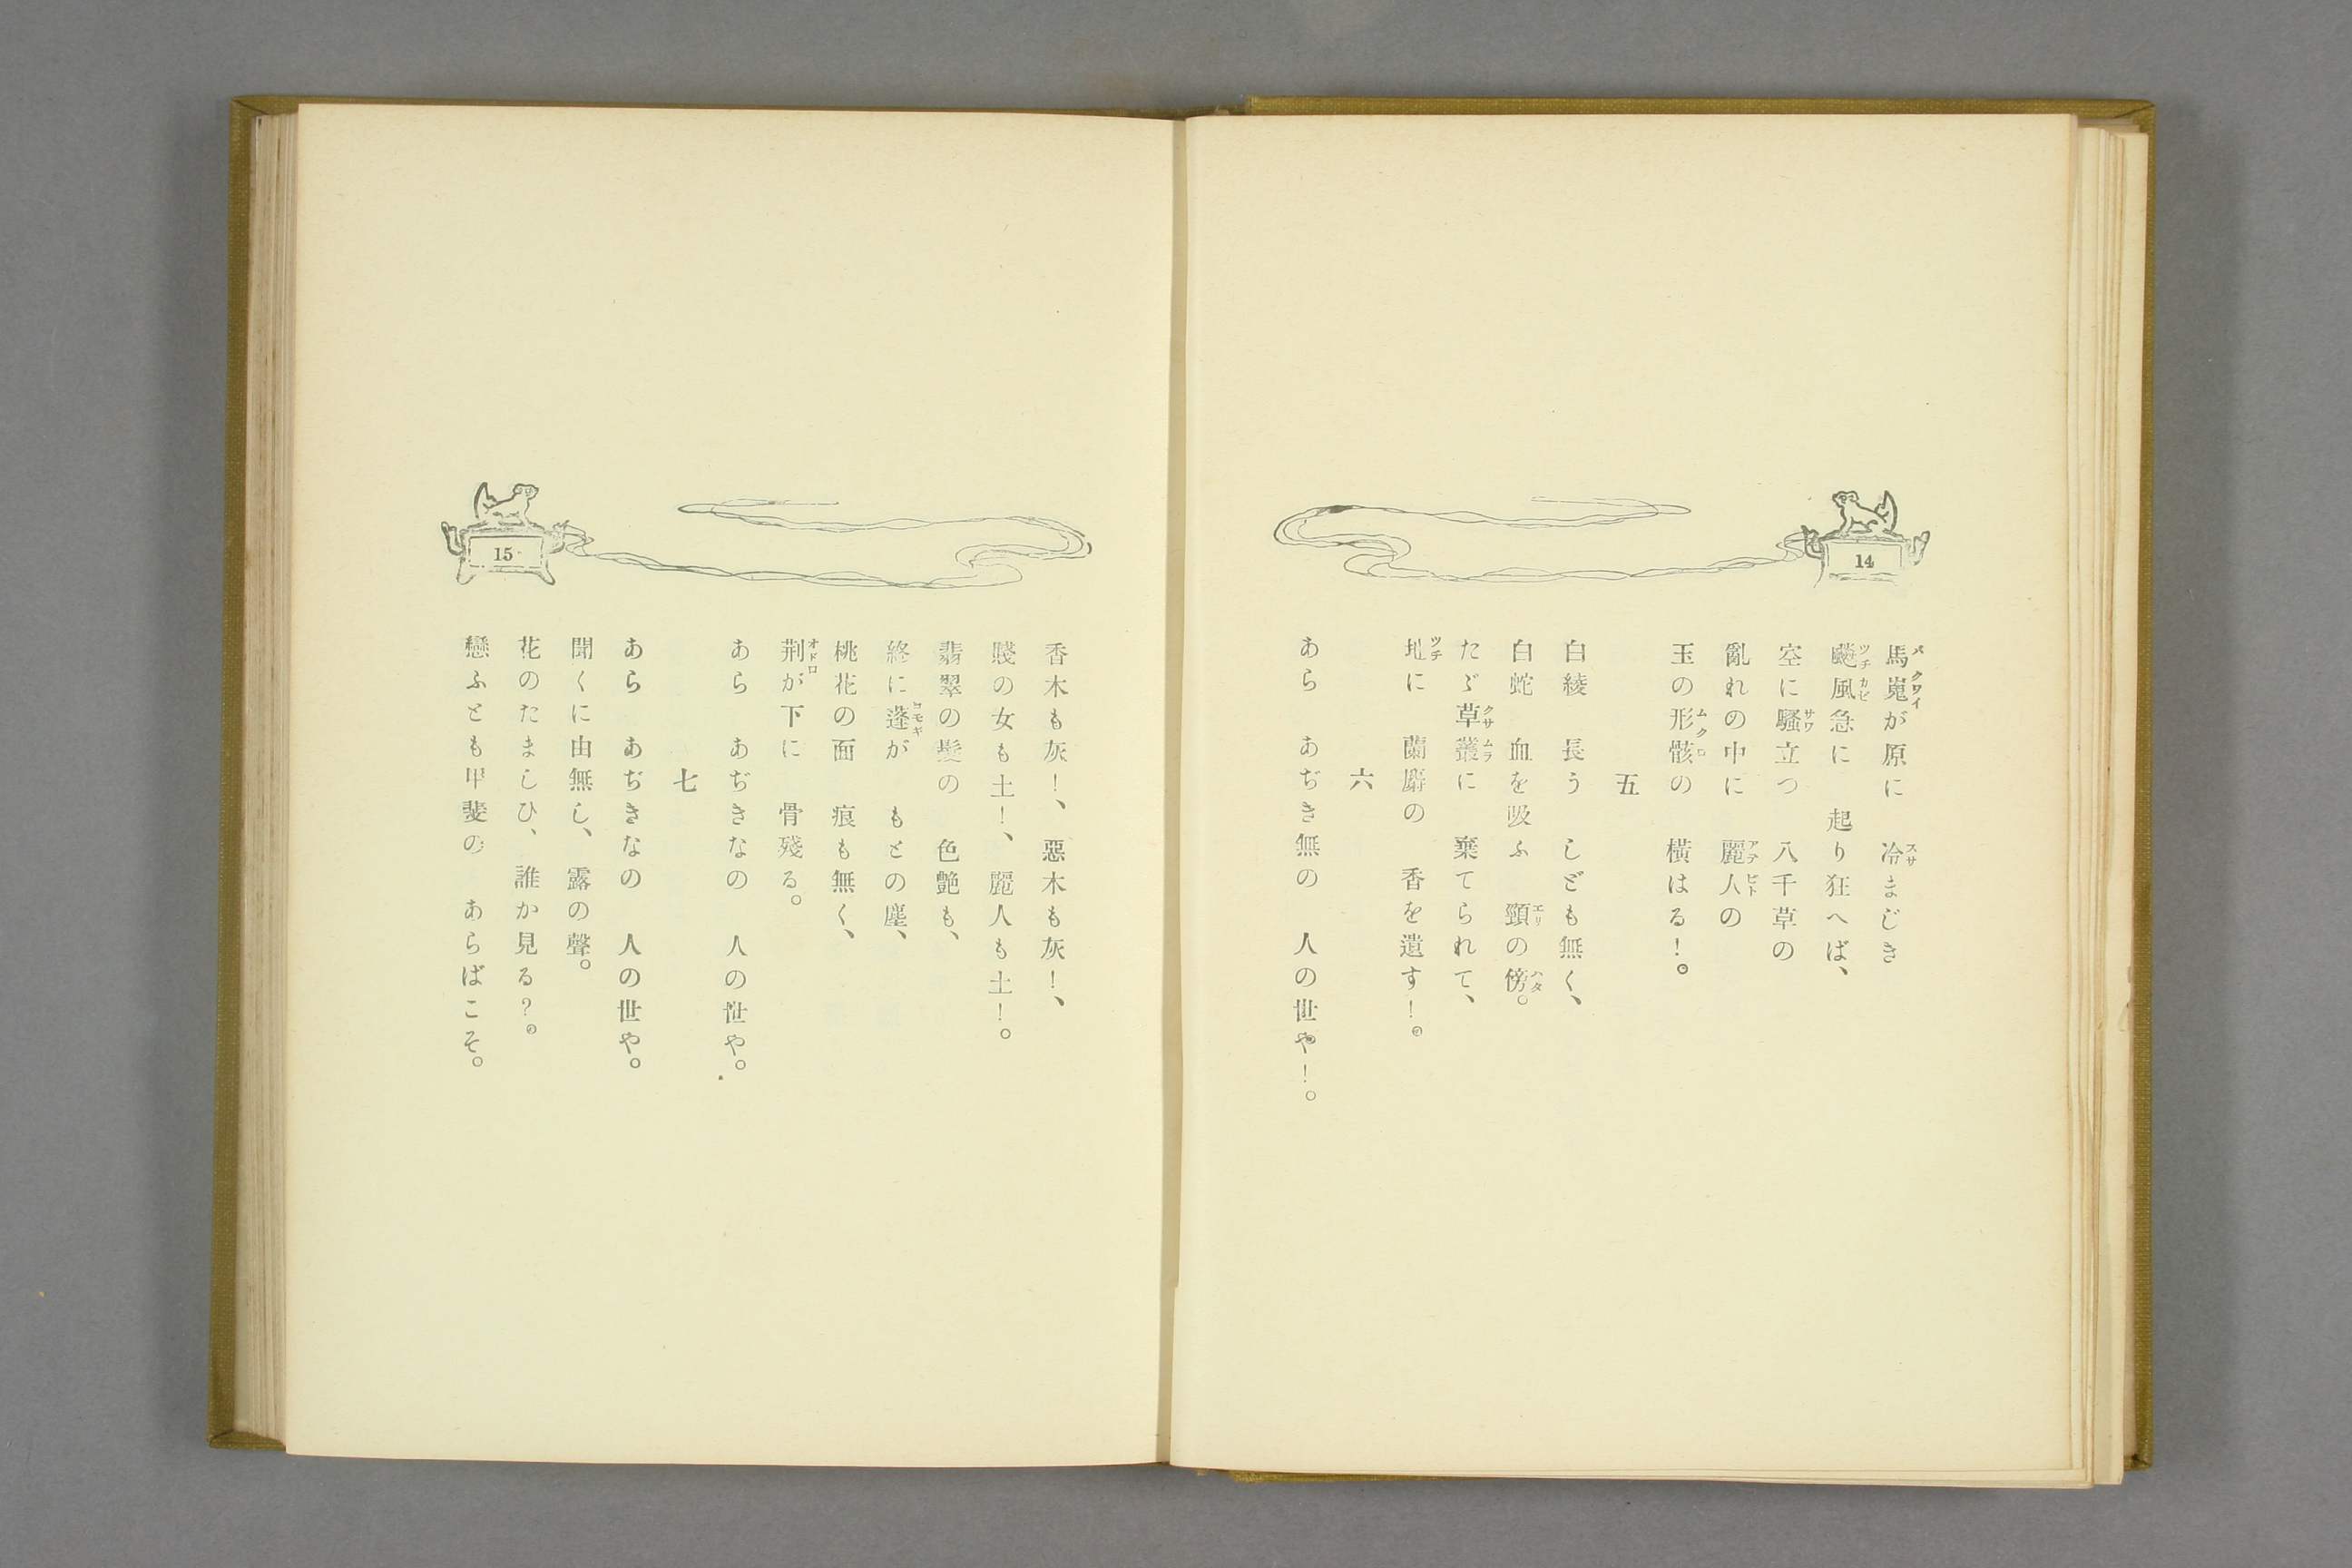 14
馬嵬が原に　冷まじき
飈風急に　起り狂へば、
空に騷立つ　八千草の
亂れの中に　麗人の
玉の形骸の　橫はる！。
五
白綾　長う　しども無く、
白蛇　血を吸ふ　頸の傍。
たゞ草叢に　棄てられて、
地に　蘭麝の　香を遺す！。
六
あら　あぢき無の　人の世や！。
15
香木も灰！、惡木も灰！、
賤の女も土！、麗人も土！。
翡翠の髮の　色艶も、
終に蓬が　もとの塵、
桃花の面　痕も無く、
荆が下に　骨殘る。
あら　あぢきなの　人の世や。
七
あら　あぢきなの　人の世や。
聞くに由無し、露の聲。
花のたましひ、誰か見る？。
戀ふとも甲斐の　あらばこそ。